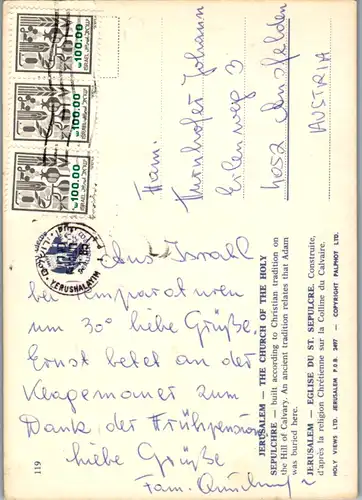 100.00
ISRAEL
100.00
ISRAEL
100.00
ISRAEL
YERUSHALAYIM
Fam.
Thurnhofer Johann
Erlenweg 3
4052 Ansfelden
AUSTRIA
Aus Israel
bei Temperaturen
um 30° liebe Grüße.
Ernst betet an der
Klagemauer zum
Dank der Frühpension
liebe Grüße
Fam.
119
JERUSALEM — THE CHURCH OF THE HOLY
SEPULCHRE — built according to Christian tradition on
the Hill of Calvary. An ancient tradition relates that Adam
was buried here.
JERUSALEM — EGLISE DU ST. SEPULCRE. Construite,
d'après la religion Chrétienne sur la Colline du Calvaire.
HOLY VIEWS LTD. JERUSALEM P.O.B. 2497 — COPYRIGHT PALPHOT LTD.